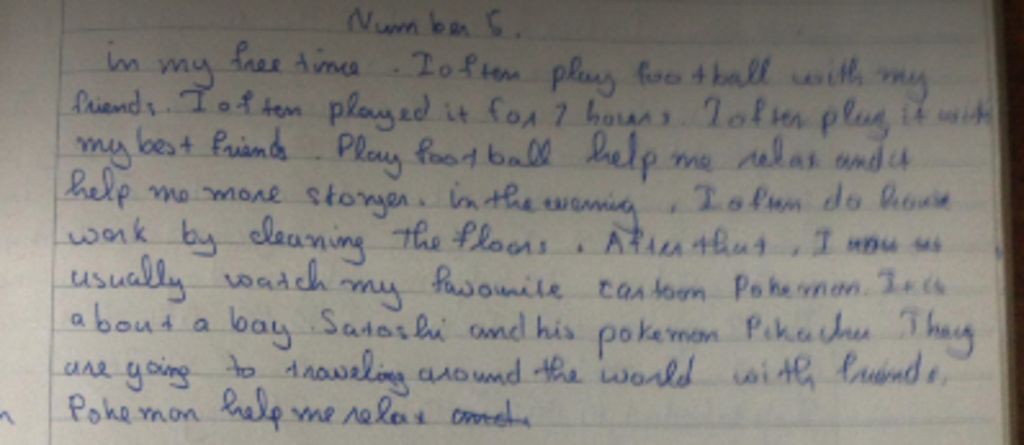 Number 5.
in my free time. I often play football with my
friends. I often played it for 7 hours. I often play it with
my best friends. Play football help me relax and it
help me more stonger. in the evering, I often do house
work by cleaning the floors. After that, I
usually watch my favourite cartoon Pokemon. It is
about a boy Satoshi and his pokemon Pikachu. They
are going to traveling around the world with friends.
Pokemon help me relax